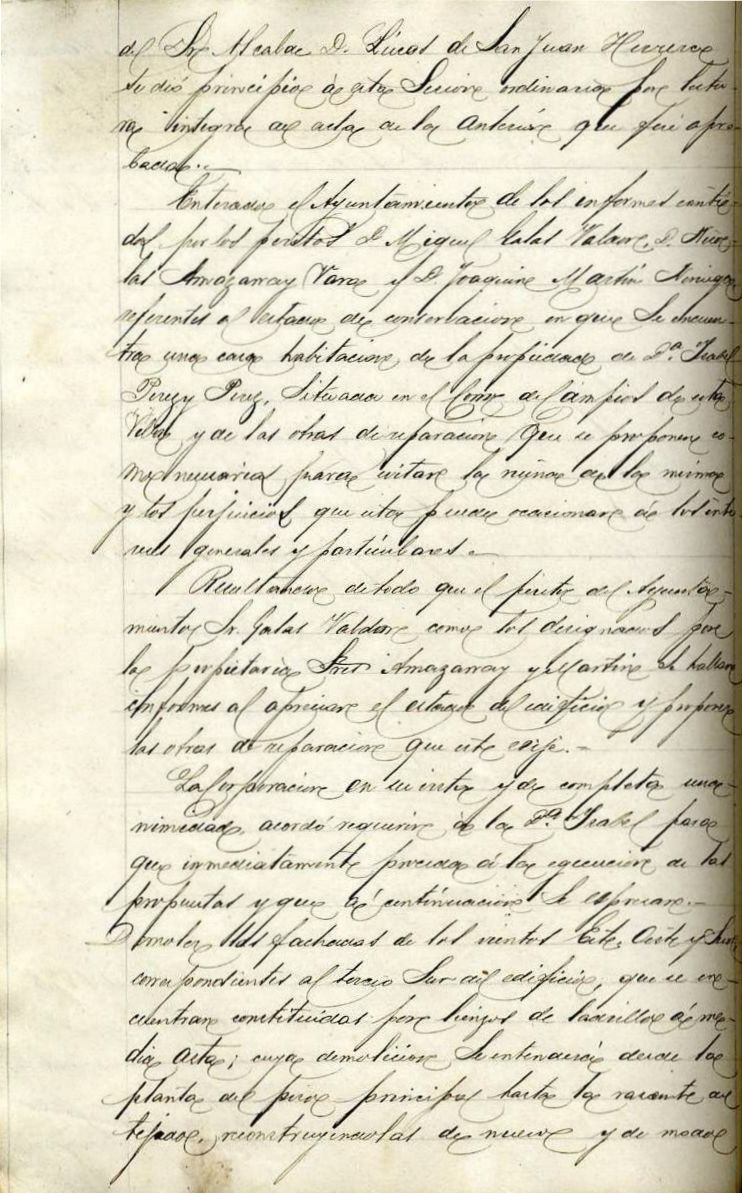 del Sr. Alcalde D. Lúcas de San Juan Herrera
se dió principio á esta Sesion ordinaria por lectu-
ra integra del acta de la anterior que fué apro-
bada.
Enterado el Ayuntamiento de los informes emiti-
dos por los peritos D. Miguel Galas Valdor, D. Nico-
las Amazarray Vara y D. Joaquin Martin Noriega
referentes al estado de conserbacion en que se encuen-
tra una casa habitacion de la propiedad de D.ª Isabel
Perez y Perez, situada en el Corro de Campios de esta
Villa y de las obras de reparacion que se proponen co-
mo necesarias para evitar la ruina de la misma
y los perjuicios que esta puede ocacionar á los inte-
reses generales y particulares.
Resultando de todo que el perito del Ayunta-
miento Sr. Galas Valdor como los designados por
la propietaria Sres Amazarray y Martin se hallan
conformes al apreciar el estado del edificio y proponen
las obras de reparacion que este exije.
La Corporacion en su vista y de completa una-
nimidad, acordó requerir á la D.ª Isabel para
que inmediatamente proceda á la egecucion de las
propuestas y que á continuacion se espresan.
Demoler las fachadas de los vientos Este, Oeste y Sur,
correspondientes al tercio Sur del edificio, que se en-
cuentran constituidas por lienzos de ladrillo á me-
dia asta; cuya demolicion se entenderá desde la
planta del piso principal hasta la rasante del
tejado, reconstruyendolas de nuevo y de modo